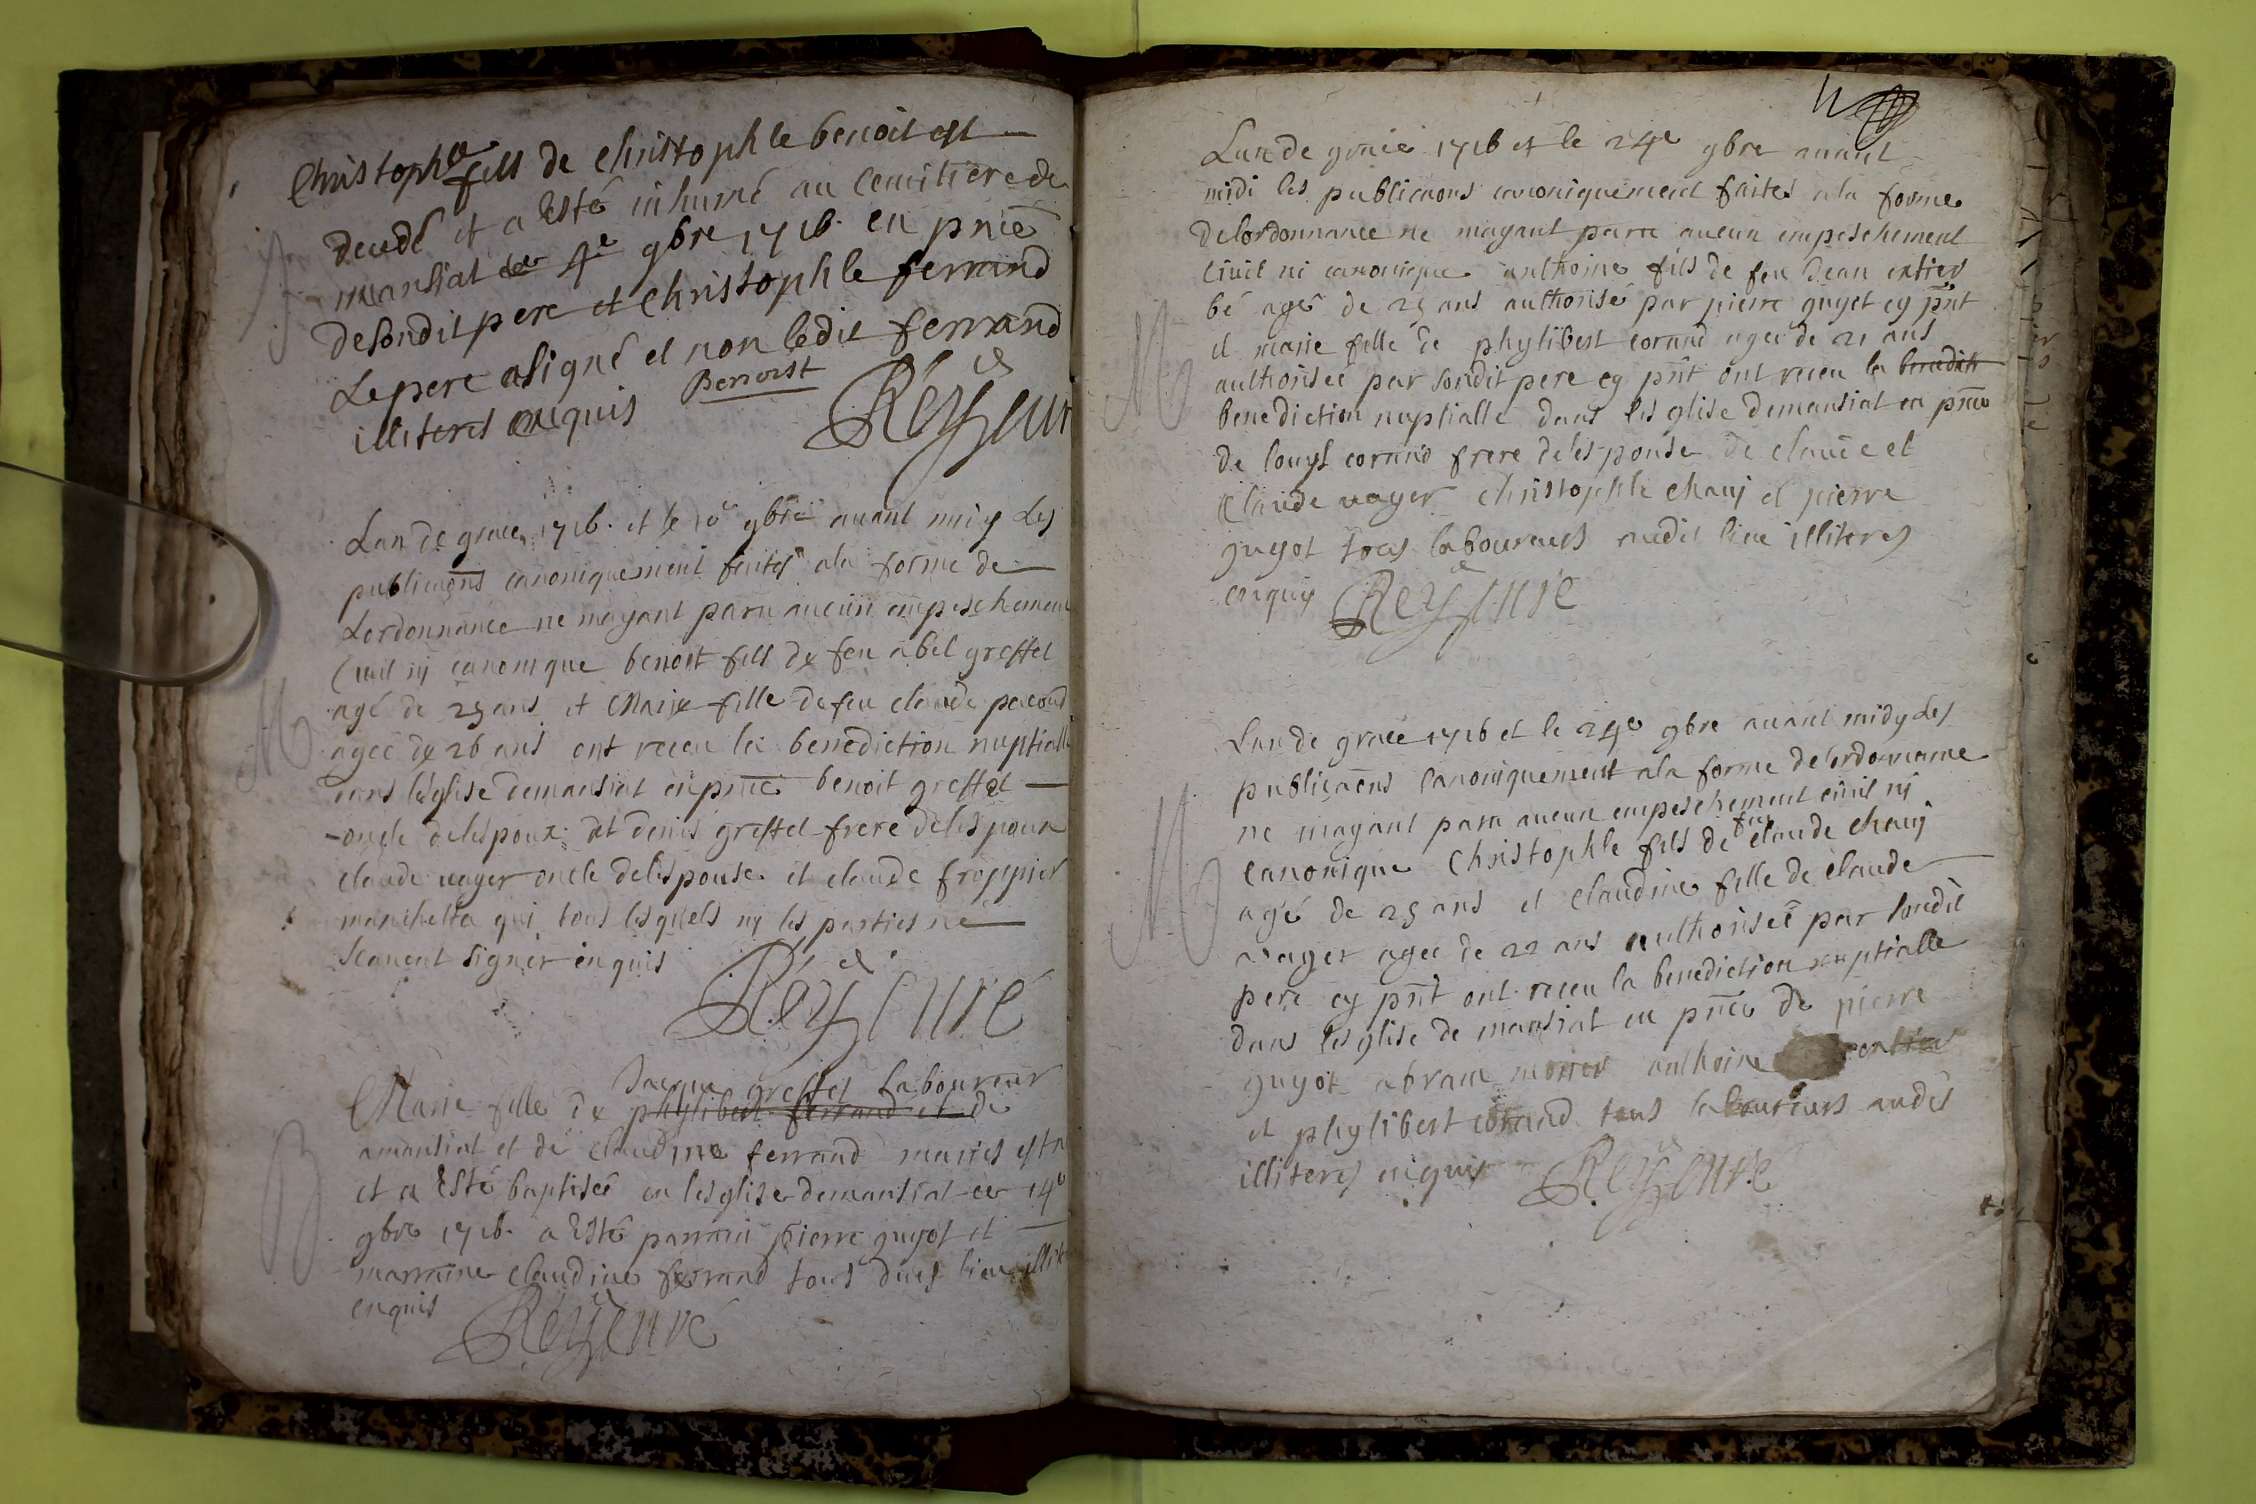 Christophle fils de christophle benoit est
decedé et a esté inhumé au cemitiere de
mansiat ce 4e 9bre 1716. en pnce
desondit pere et christophle ferrand
Le pere a signé et non ledit ferrand
illiteres enquis Benoist
Rey curé
Lan de grace 1716. et le 10e 9bre avant midy Les
publicaons canoniquement faites ala forme de
Lordonnance ne mayant paru aucun empeschement
Civil ny canonique benoit fils de feu abel greffet
agé de 25 ans et Marie fille de feu claude pacoud
agee de 26 ans ont receu la benediction nuptialle
dans leglise demansiat en pnce benoit greffet
oncle delespoux et denis greffet frere delespoux
claude vayer oncle delespouse et claude
qui tous lesquels ny les parties ne
scavent signer enquis
Rey curé
Jacque greffet Laboureur
Marie fille de phylibert ferrand et de
amansiat et de claudine ferrand maries est n
et a esté baptisée en lesglise demansiat ce 14e
9bre 1716. a esté parrain pierre guyot et
marraine claudine ferrand tous dudt lieu illit
enquis
Rey curé
11
Lan de grace 1716 et le 24e 9bre avant
midi les publicaons canoniquement faites ala forme
delordonnance ne mayant paru aucun empeschement
Civil ni canonique anthoine fils de feu Jean
bé agé de 25 ans authorisé par pierre guyot cy pnt
et marie fille de phylibert corand agee de 21 ans
authorisée par sondit pere cy pnt ont receu la benediti
benediction nuptialle dans lesglise demansiat en pnce
de louys corand frere delespouse de claude et
Claude vayer christophle chavy et pierre
guyot tous laboureurs audit lieu illiteres
enquis Rey curé
Lan de grace 1716 et le 24e 9bre avant midy Les
publicaons canoniquement ala forme delordonnance
ne mayant paru aucun empeschement civil ny
canonique Christophle fils de feu claude chavy
agé de 25 ans et claudine fille de claude
vayer agee de 22 ans authorisée par sondit
pere cy pnt ont receu la benediction nuptialle
dans lesglise de mansiat en pnce de pierre
guyot abram morier anthoine
et phylibert corand tous laboureurs audit
illiteres enquis Rey curé